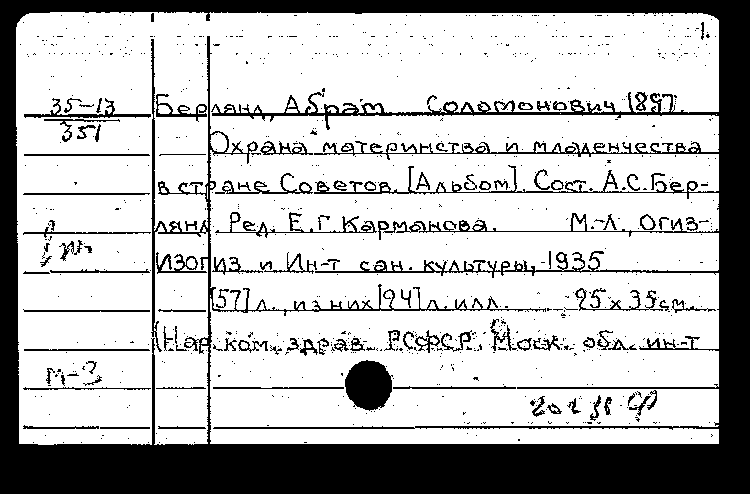 1.
35-13
351
Берлянд, Абрам Соломонович, 1897.
Охрана материнства и младенчества
в стране Советов. [Альбом]. Сост. А.С. Бер-
лянд. Ред. Е.Г. Карманова. М.-Л., Огиз-
ИЗОГИЗ и Ин-т сан. культуры, 1935
[57] л., из них [24] л. илл. 25 х 35 см.
(Нар. ком. здрав. РСФСР. Моск. обл. ин-т
М-3